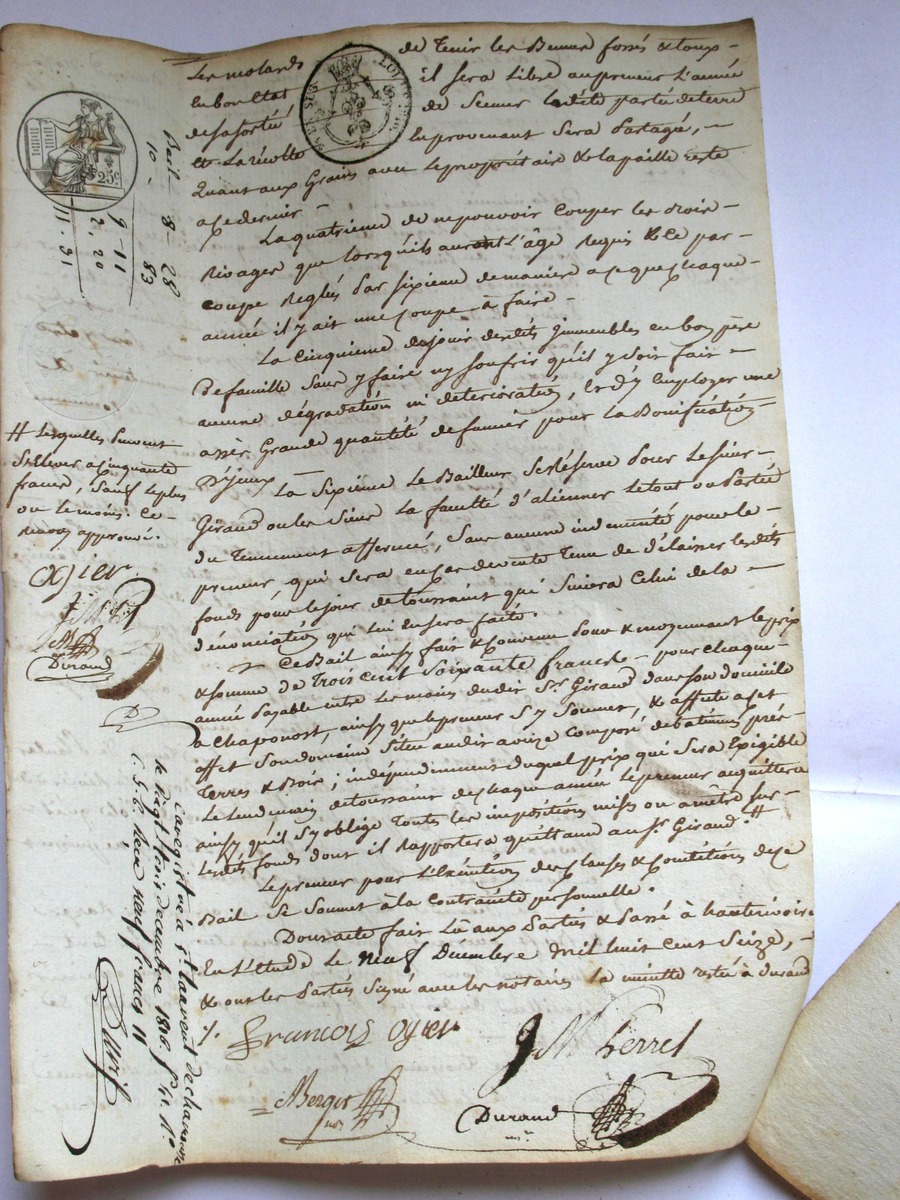 Les molards
en bon Etat
de sa sortie
et La récolte
de Tenir les
fossés & toup-
il sera Libre au preneur L'année
de Semer partie de terre
En provenant Sera Partagé, -
Quant aux Grains avec Le propriétaire & la paille reste
a ce dernier -
La quatrieme de ne pouvoir Couper les Bois-
Rivages que Lorsquils auront L'âge Requis & Ce par-
Coupe Reglés Par sixieme de maniere a ce que Chaque-
année il y ait une Coupe à faire -
La Cinquieme de jouir desdits Immeubles en bon père
De famille sans y faire ny souffrir qu'il y soit fait -
aucune dégradation ni détérioration, Et d'y Employer une
assès Grande quantité de fumier pour La Bonification
D'yceux -
La Sixième Le Bailleur Se Réserve Pour Le sieur-
Giraud ou les Siens La faculté d'aliener Le tout ou Partie
du Tennement affermé, Sans aucune indemnité pour Le-
preneur, qui Sera en Cas de vente Tenu de délaisser lesdits
fonds pour Le jour de toussaint qui Suivra Celui de la -
dénonciation qui Lui En sera faite.
Ce Bail ainsy fait & Convenu Pour & moyennant Le prix
& somme de Trois cent soixante francs - pour chaque-
année Payable entre Les mains dudit Sr. Giraud dans son domicile
a Chaponost, ainsy que le preneur S'y Soumet, & affecte a cet
effet Son domaine Situé audit avaize Composé de batimens, prés
Terres & Bois; indépendamment duquel prix qui Sera Exigible
Le Lendemain de toussaint de chaque année Le preneur acquittera
ainsy qu'il S'y oblige Toutes Les impositions mises ou a mettre sur-
Lesdits fonds dont il Rapportera quittance au Sr. Giraud. #
Le preneur pour L'Exécution des Clauses & Conditions de ce
Bail Se Soumet à la Contrainte personnelle.
Dont acte fait Lû aux Parties & Passé à hauterivoire
En L'Etude Le neuf Décembre mil huit Cent Seize, -
& ont les Parties Signé avec les notaires la minutte restée à Durand
François Ogier
JM Perret
Berger
Durand
25c
Bail - 8 - 28
10 - 83
9 - 11
2, 20
11. 31
# Lesquelles Peuvent
S'Elever a Cinquante
francs, Sauf Le plus
ou Le moins. Ce-
Renvoy approuvé.
Ogier
Durand
Enregistré à St. Laurent de chamousset
le vingt trois décembre 1816. f° 41. R°
C. 5. 6. Reçu neuf francs 11